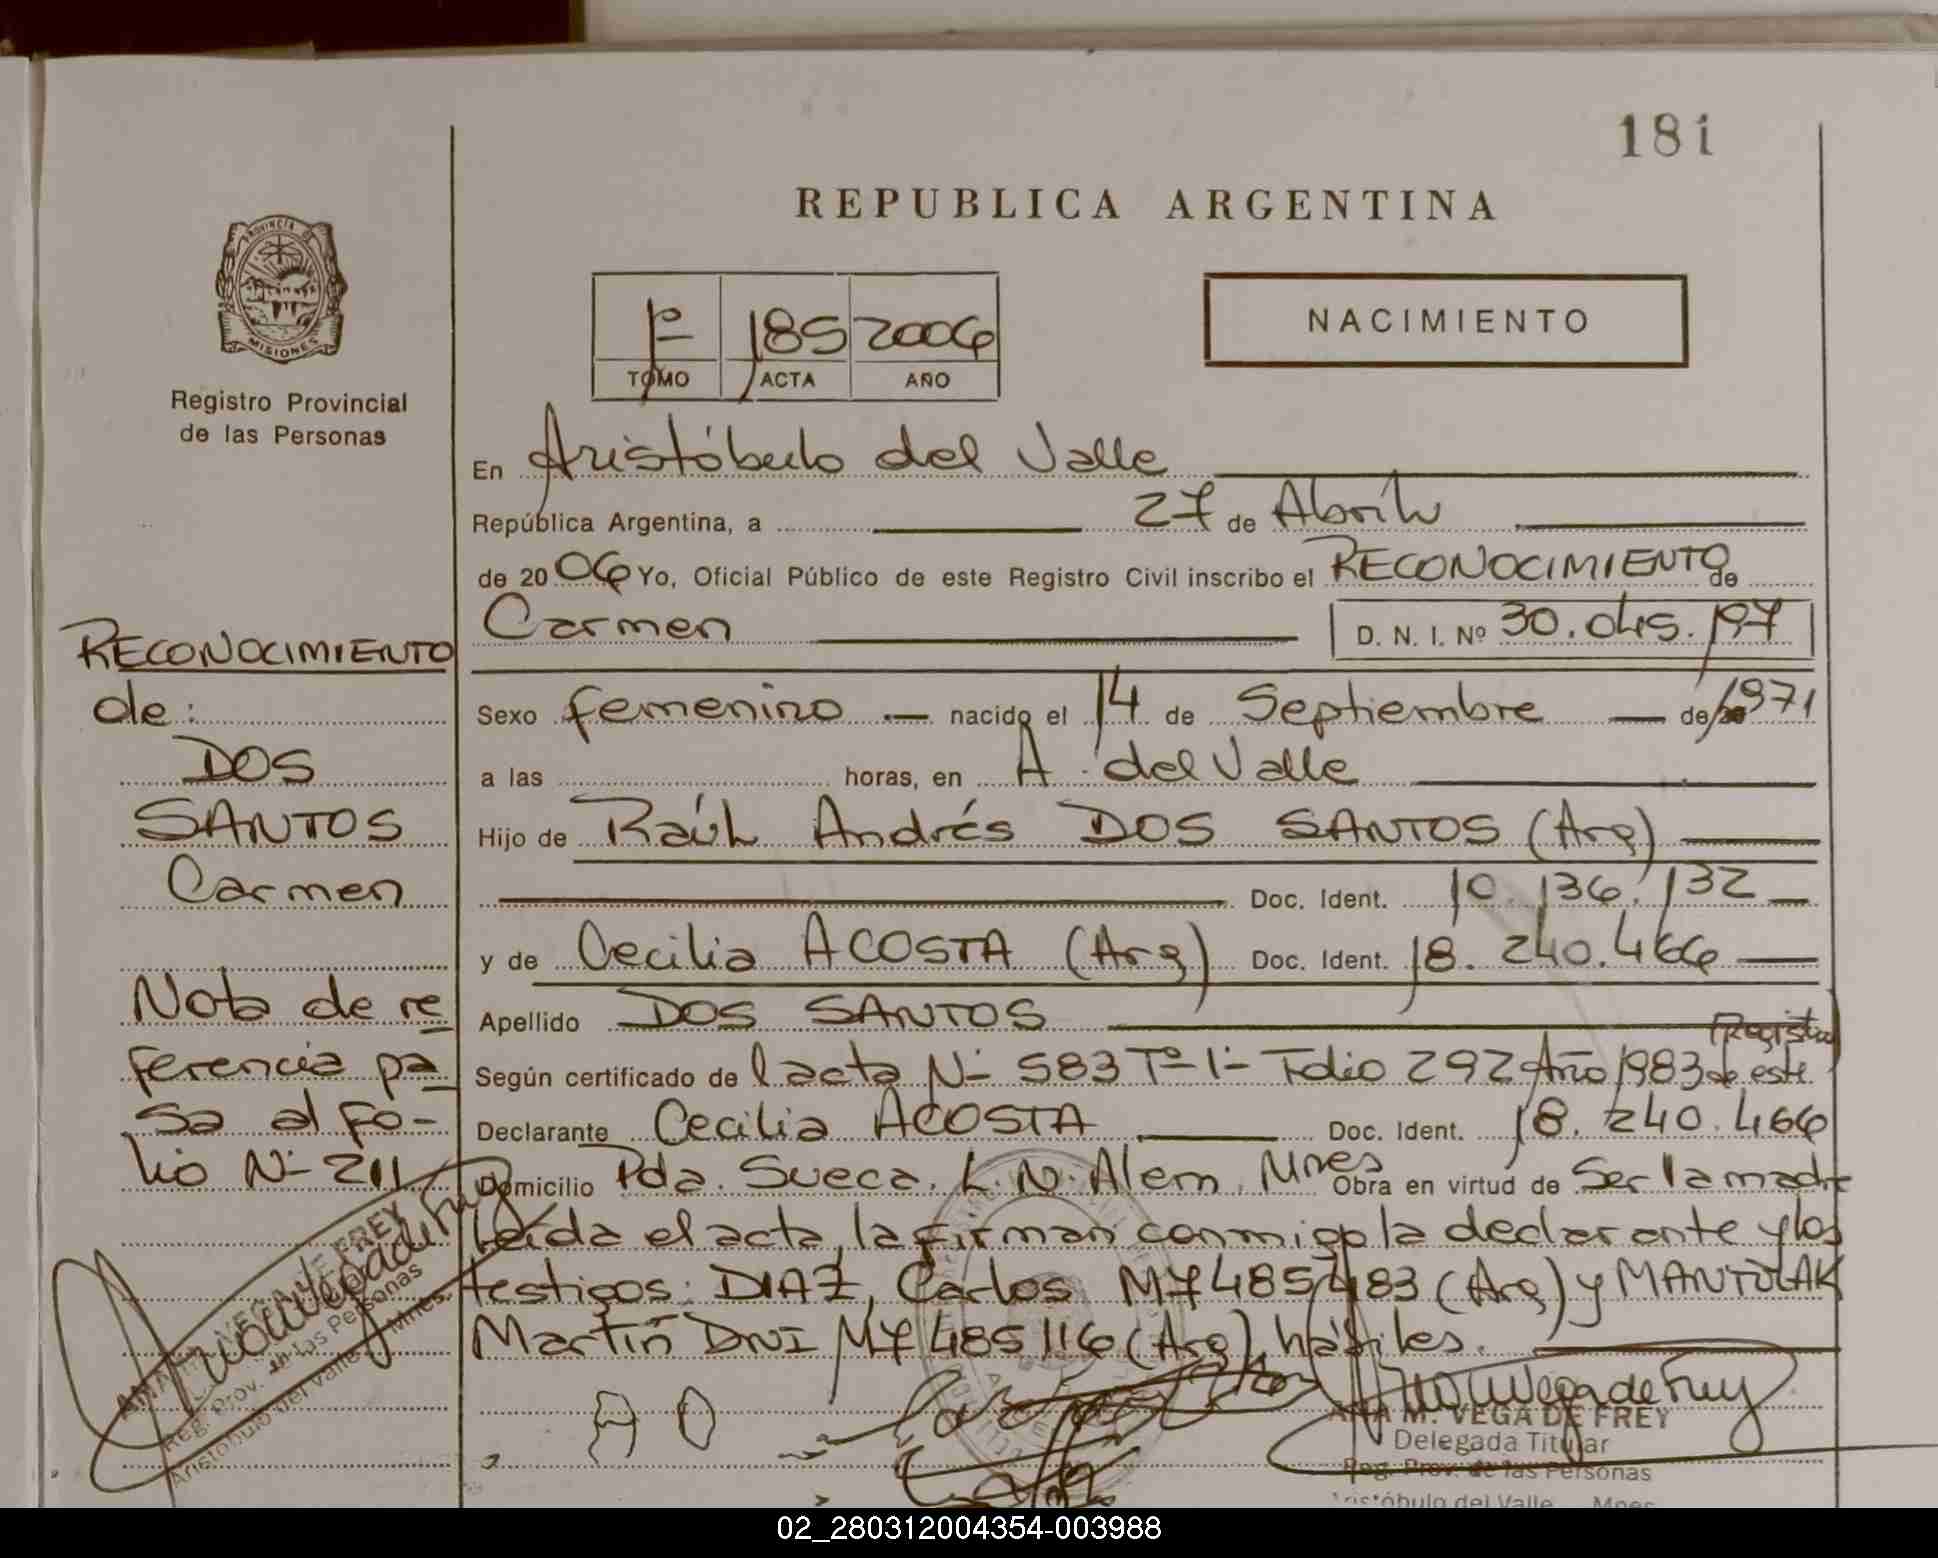 181
REPUBLICA ARGENTINA
PROVINCIA DE
MISIONES
Registro Provincial
de las Personas
1º 185 2006
TOMO ACTA AÑO
NACIMIENTO
En Aristóbulo del Valle
República Argentina, a 27 de Abril
de 2006 Yo, Oficial Público de este Registro Civil inscribo el RECONOCIMIENTO de
Carmen D. N. I. Nº 30.045.197
Sexo femenino nacido el 14 de Septiembre de 1971
a las horas, en A. del Valle
Hijo de Raúl Andrés DOS SANTOS (Arg)
Doc. Ident. 10.136.132
y de Cecilia ACOSTA (Arg) Doc. Ident. 18.240.466
Apellido DOS SANTOS
(Registro
Según certificado de l acta Nº 583 Tº 1º Folio 292 Año 1983 de este
Declarante Cecilia ACOSTA Doc. Ident. 18.240.466
Domicilio Pda. Sueca. L.N. Alem, Mnes Obra en virtud de Ser la madre
Leída el acta, la firman conmigo la declarante y los
testigos: DIAZ, Carlos M7485483 (Arg) y MANTULAK
Martín DNI M7485116 (Arg) hábiles.
RECONOCIMIENTO
de:
DOS
SANTOS
Carmen
Nota de re
ferencia pa
sa al fo-
lio Nº 211
ANA M. VEGA DE FREY
Reg. Prov. de las Personas
Aristóbulo del Valle Mnes.
ANA M. VEGA DE FREY
Delegada Titular
Reg. Prov. de las Personas
Aristóbulo del Valle Mnes
02_280312004354-003988